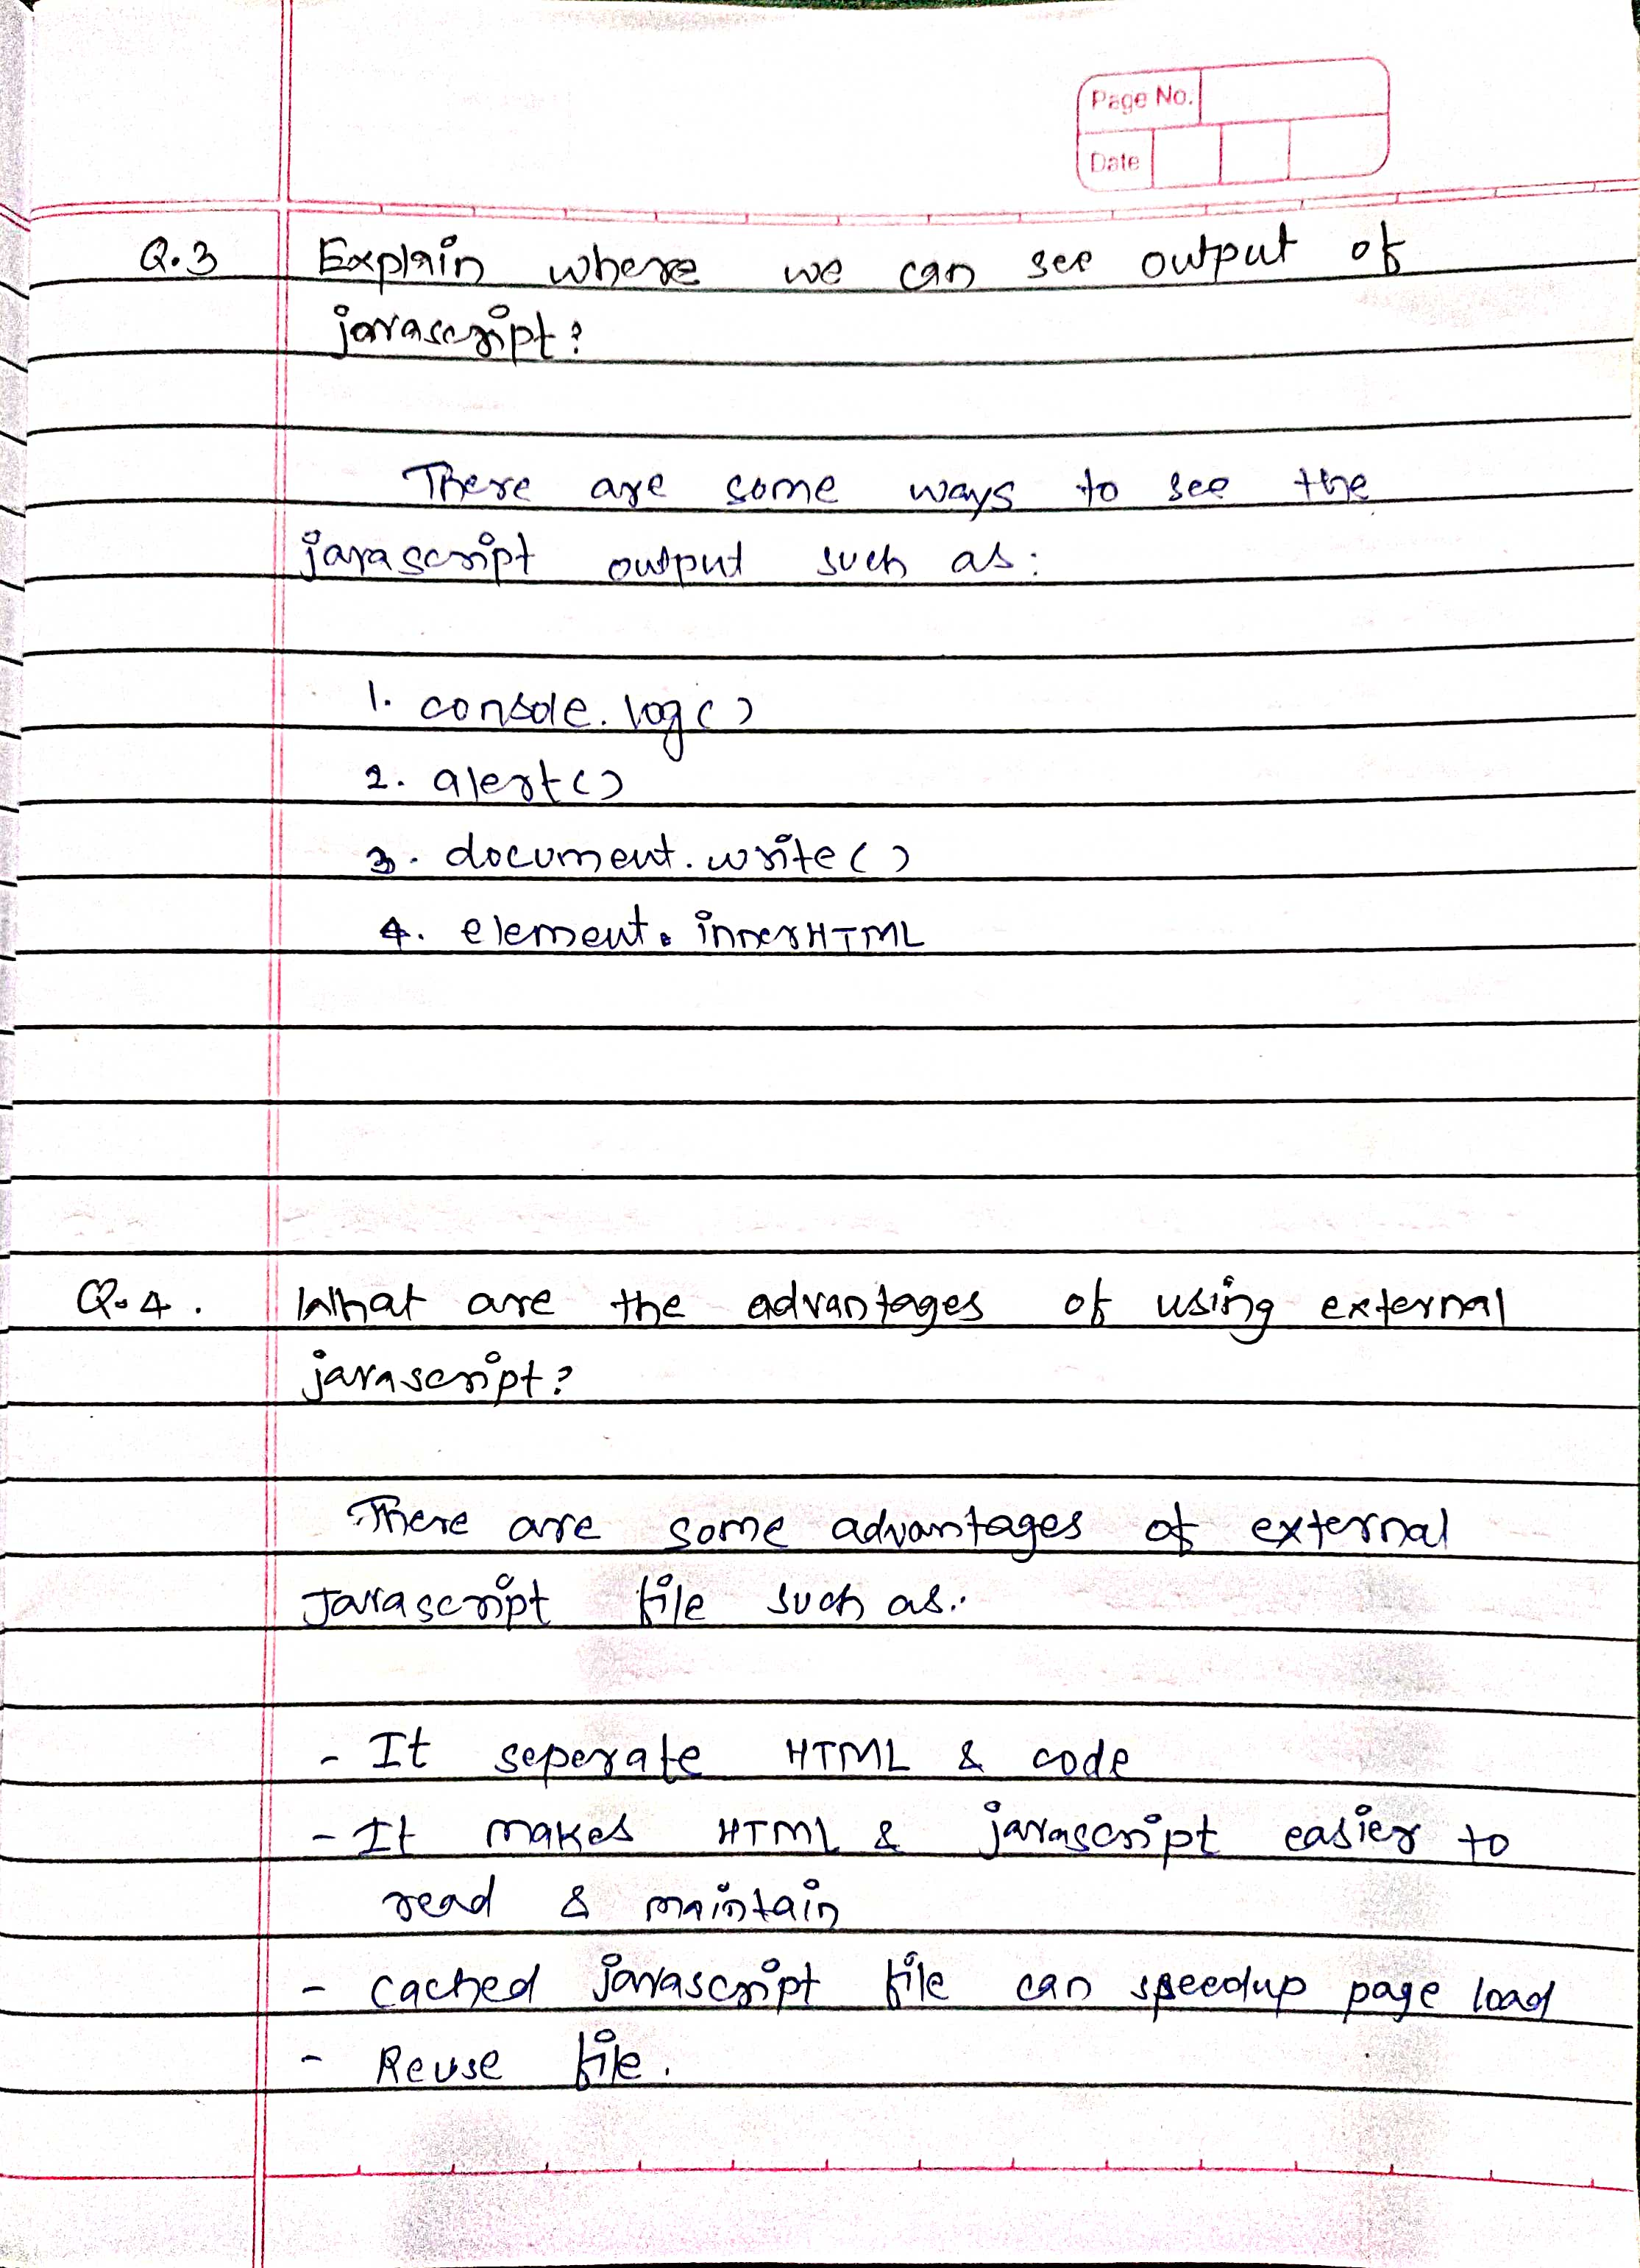 Page No.
Date
Q.3 Explain where we can see output of
javascript?
There are some ways to see the
javascript output such as:
1. console.log()
2. alert()
3. document.write()
4. element.innerHTML
Q.4. What are the advantages of using external
javascript?
There are some advantages of external
Javascript file such as:
- It seperate HTML & code
- It makes HTML & javascript easier to
read & maintain
- cached javascript file can speedup page load
- Reuse file.